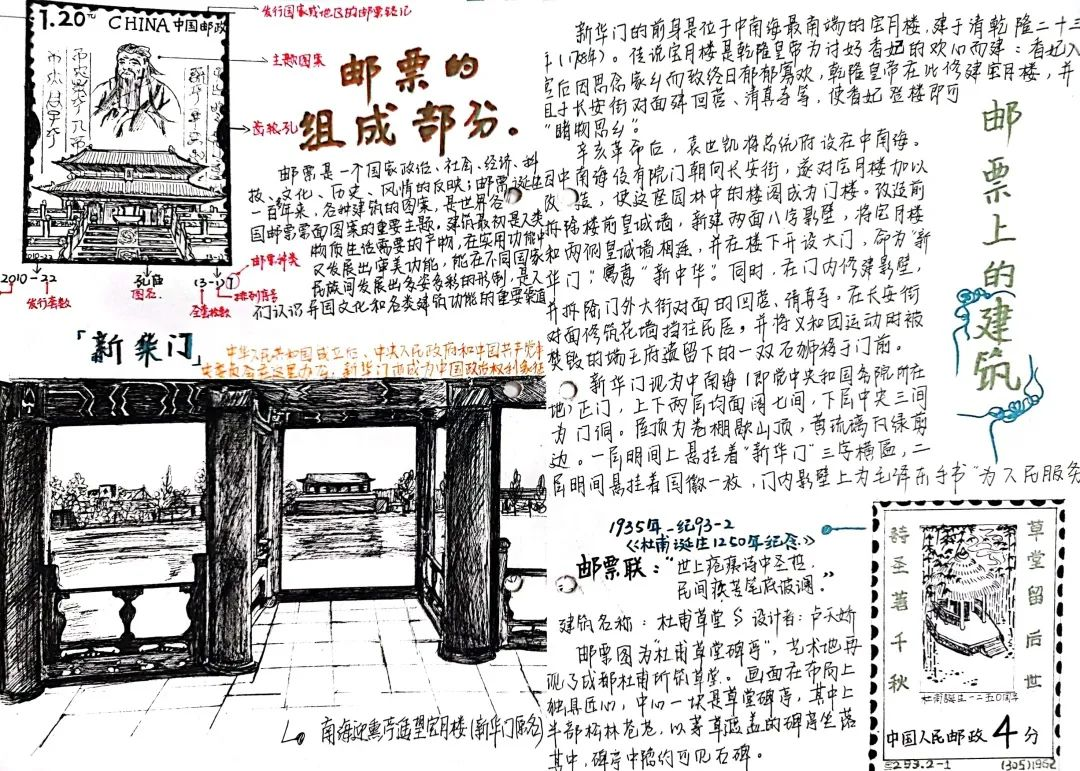 1.20元 CHINA 中国邮政
发行国家或地区的邮票铭记
主题图案
齿轮孔
2010-22
发行套数
孔庙
图名
(3-1)
全套枚数
邮票种类
T
排列序号
邮票的
组成部分。
邮票是一个国家政治、社会、经济、科
技、文化、历史、风情的反映；邮票诞生
一百年来，各种建筑的图案，是世界各
国邮票票面图案的重要主题。建筑最初是人类
物质生活需要的产物，在实用功能中
又发展出审美功能，能在不同国家和
民族间发展出多姿多彩的形制，是人
们认识异国文化和各类建筑功能的重要渠道
「新华门」
中华人民共和国成立后，中央人民政府和中国共产党
办公，新华门而成为中国政治权利象征
南海迎熏亭遥望宝月楼(新华门原名)
新华门的前身是位于中南海最南端的宝月楼，建于清乾隆二十三
年(1758年)。传说宝月楼是乾隆皇帝为讨好香妃的欢心而建：香妃入
宫后因思念家乡而致终日郁郁寡欢，乾隆皇帝在此修建宝月楼，并
且于长安街对面建回营、清真寺等，使香妃登楼即可
“睹物思乡”。
辛亥革命后，袁世凯将总统府设在中南海。
因中南海没有院门朝向长安街，遂对宝月楼加以
改造，使这座园林中的楼阁成为门楼。改设前
拆除楼前皇城墙，新建两面八字影壁，将宝月楼
和两侧皇城墙相连，并在楼下开设大门，命为“新
华门”；寓意“新中华”。同时，在门内修建影壁，
并拆除门外大街对面的回营、清真寺，在长安街
对面修筑花墙挡住民居。并将义和团运动时被
焚毁的端王府遗留下的一双石狮移于门前。
新华门现为中南海(即党中央和国务院所在
地)正门，上下两层均面阔七间，下层中央三间
为门洞。屋顶为卷棚歇山顶，黄琉璃瓦绿剪
边。一层明间上悬挂着“新华门”三字横匾，二
层明间悬挂着国徽一枚，门内影壁上为毛泽东手书“为人民服务
邮票上的建筑
1935年-纪93-2
《杜甫诞生1250年纪念》
邮票联：“世上疮痍诗中圣哲，
民间疾苦笔底波澜。”
建筑名称：杜甫草堂 S 设计者：卢天娇
邮票图为“杜甫草堂碑亭”，艺术地再
现了成都杜甫所筑草堂。画面在布局上
独具匠心，中心一块是草堂碑亭，其中上
半部松林苍苍，以茅草遮盖的碑亭坐落
其中，碑亭中隐约可见石碑。
草堂留后世
诗圣著千秋
杜甫诞生一二五〇周年
中国人民邮政 4分
293.2-1
(305)1962